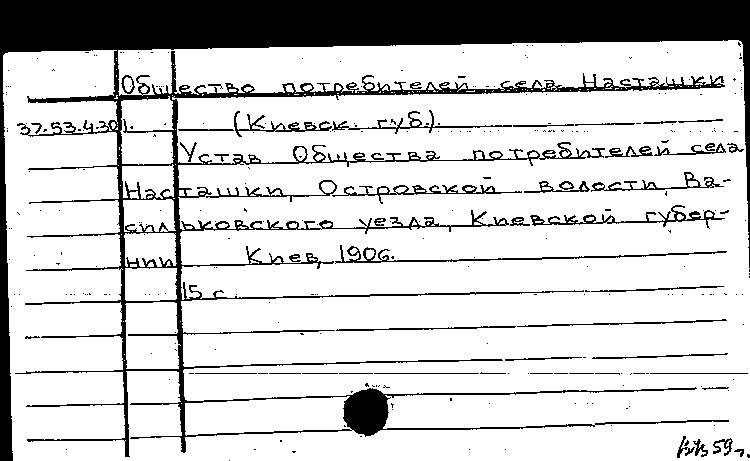 Общество потребителей села Насташки
37.53.4.301. (Киевск. губ.).
Устав Общества потребителей села
Насташки, Островской волости, Ва-
сильковского уезда, Киевской губер-
нии. Киев, 1906.
15 с.